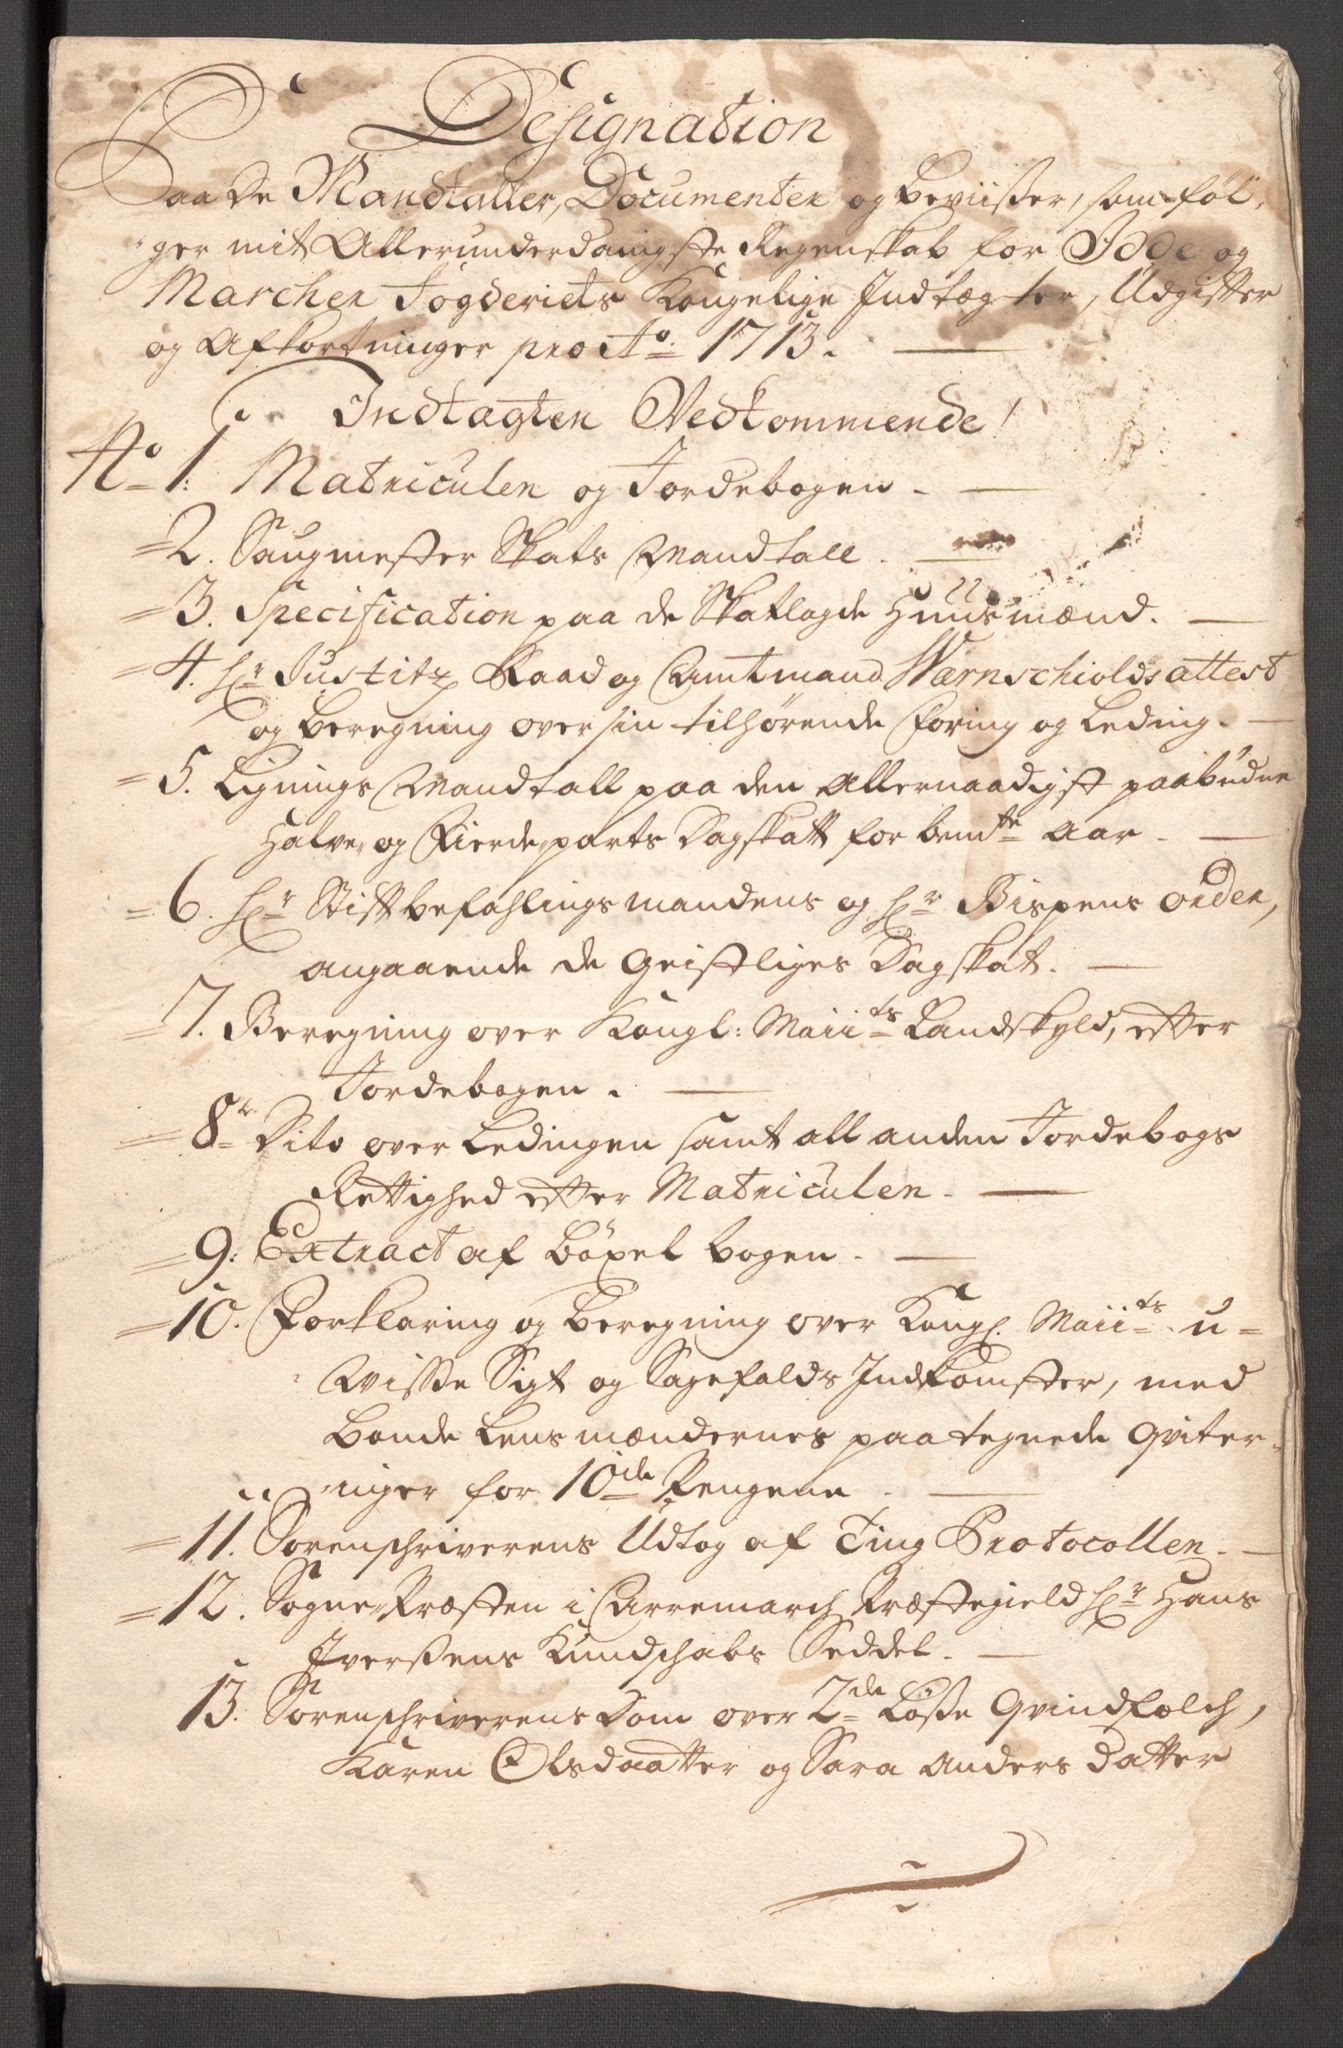 Designation
Paa De Mandtaller, Documenter og beviisser, som føl,
ger mit Allerunderdanigste Regenskab for Idde og
Marcher Fogderiets Kongelige Indtægter, Udgifter
og Afkortninger pro Ao: 1713.
Indtagten Vedkommende!
No 1: Matriculen og Jordebogen.
= 2. Saugmester Skats Mandtall.
= 3. Specification paa de Skatlagde Huusmænd.
= 4. Hr Justitz Raad og Amtmand Wärnschiolds attest
og beregning over sin tilhørende foring og Leding.
= 5. Lignings Mandtall paa den Allernaadigst paabudne
Halve, og Fierde parts Dagskatt for bemte Aar.
= 6. Hr Stiftbefahlings mandens og Hr Bispens order,
angaaende de Geistliges Dagskat.
= 7. Beregning over Kongl: Maiits Landskyld, effter
Jordebogen.
= 8r Dito over Ledingen samt all anden Jordebogs
Rettighed effter Matriculen.
= 9: Extract af böxel bogen.
= 10. Forklaring og beregning over Kongl. Maiits u=
Wisse Sigt og Sagefalds Indkomster, med
bonde Lens mændernes paategnede Qviter=
inger for 10de Pengene.
= 11. Sorenschriverens Udtog af Ting Protocollen.
= 12. Sogne, Præsten i Arremarch Præstegield Hr Hans
Iversens Kundschabs Seddel.
13. Sorenschriverens Dom over 2de Løsse Qvindfolch,
Karen Olsdaatter og Sara Anders Datter